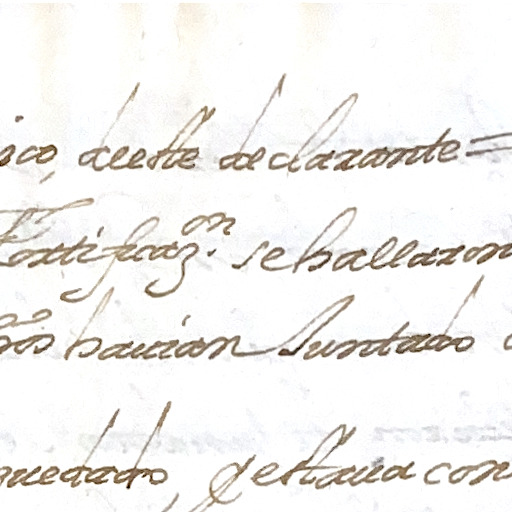 ico, deeste declarante =
Fortificaz.on se hallaron
hauian Juntado
quedado, y estaua con